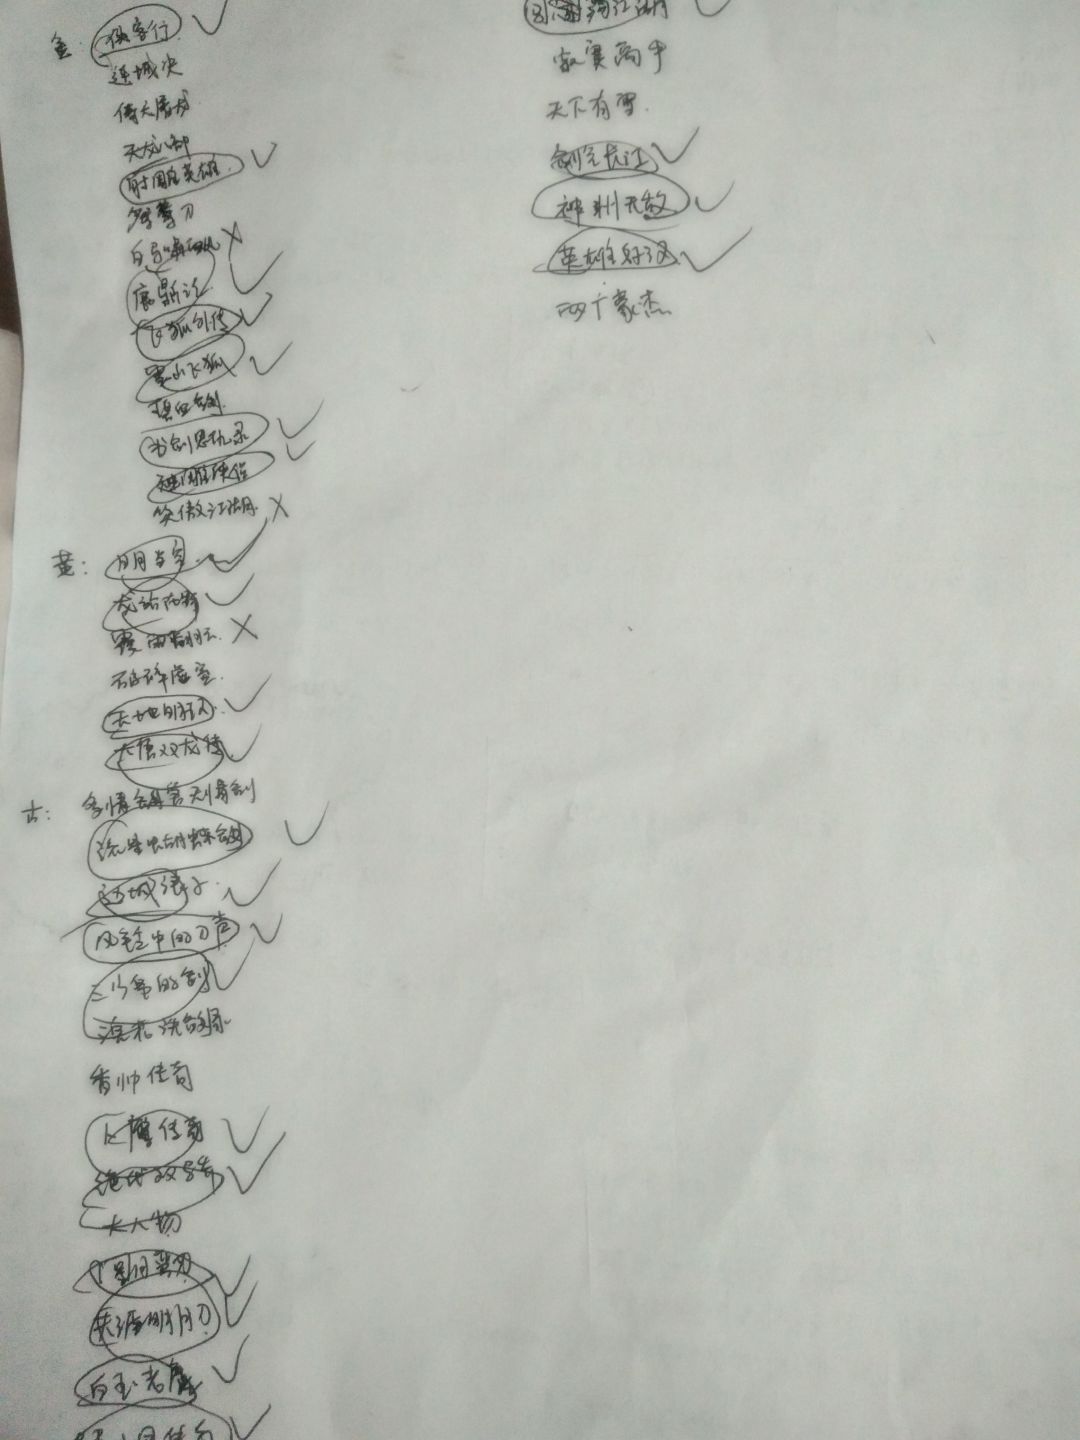 金: 侠客行
连城决
倚天屠龙
天龙八部
射雕英雄
鸳鸯刀
白马啸西风
鹿鼎记
飞狐外传
雪山飞狐
碧血剑
书剑恩仇录
神雕侠侣
笑傲江湖
黄: 日月当空
龙战在野
覆雨翻云
破碎虚空
大唐双龙传
古: 多情剑客无情剑
流星蝴蝶剑
边城浪子
风铃中的刀声
三少爷的剑
浣花洗剑录
香帅传奇
飞鹰传奇
绝代双骄
大人物
圆月弯刀
天涯明月刀
白玉老虎
江湖
寂寞高手
天下有雪
剑气长江
神州无敌
英雄好汉
两广豪杰